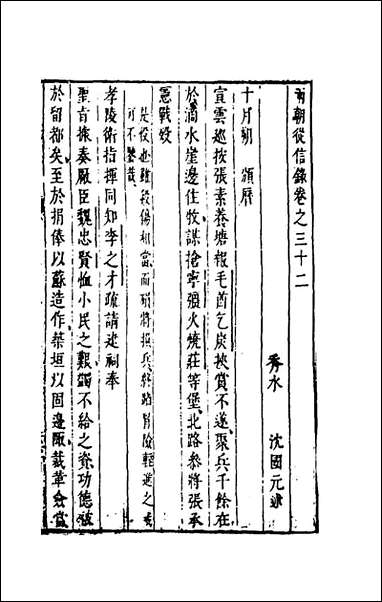 兩朝從信錄卷之三十二
秀水 沈國元 述
十月朔 頒曆
宣雲巡按張素養塘報毛酋乞炭挾賞不遂聚兵千餘在
於滴水崖邊住牧謀搶寧彊火燒莊等堡北路參將張承
憲戰歿
是役也雖殺傷相當而損將損兵終路冒險輕進之戒
可不鑒哉
孝陵衛指揮同知李之才疏請建祠奉
聖旨據奏厰臣魏忠賢恤小民之艱蠲不給之資功德被
於留都矣至於捐俸以蘇造作築垣以固邊陲裁革僉當